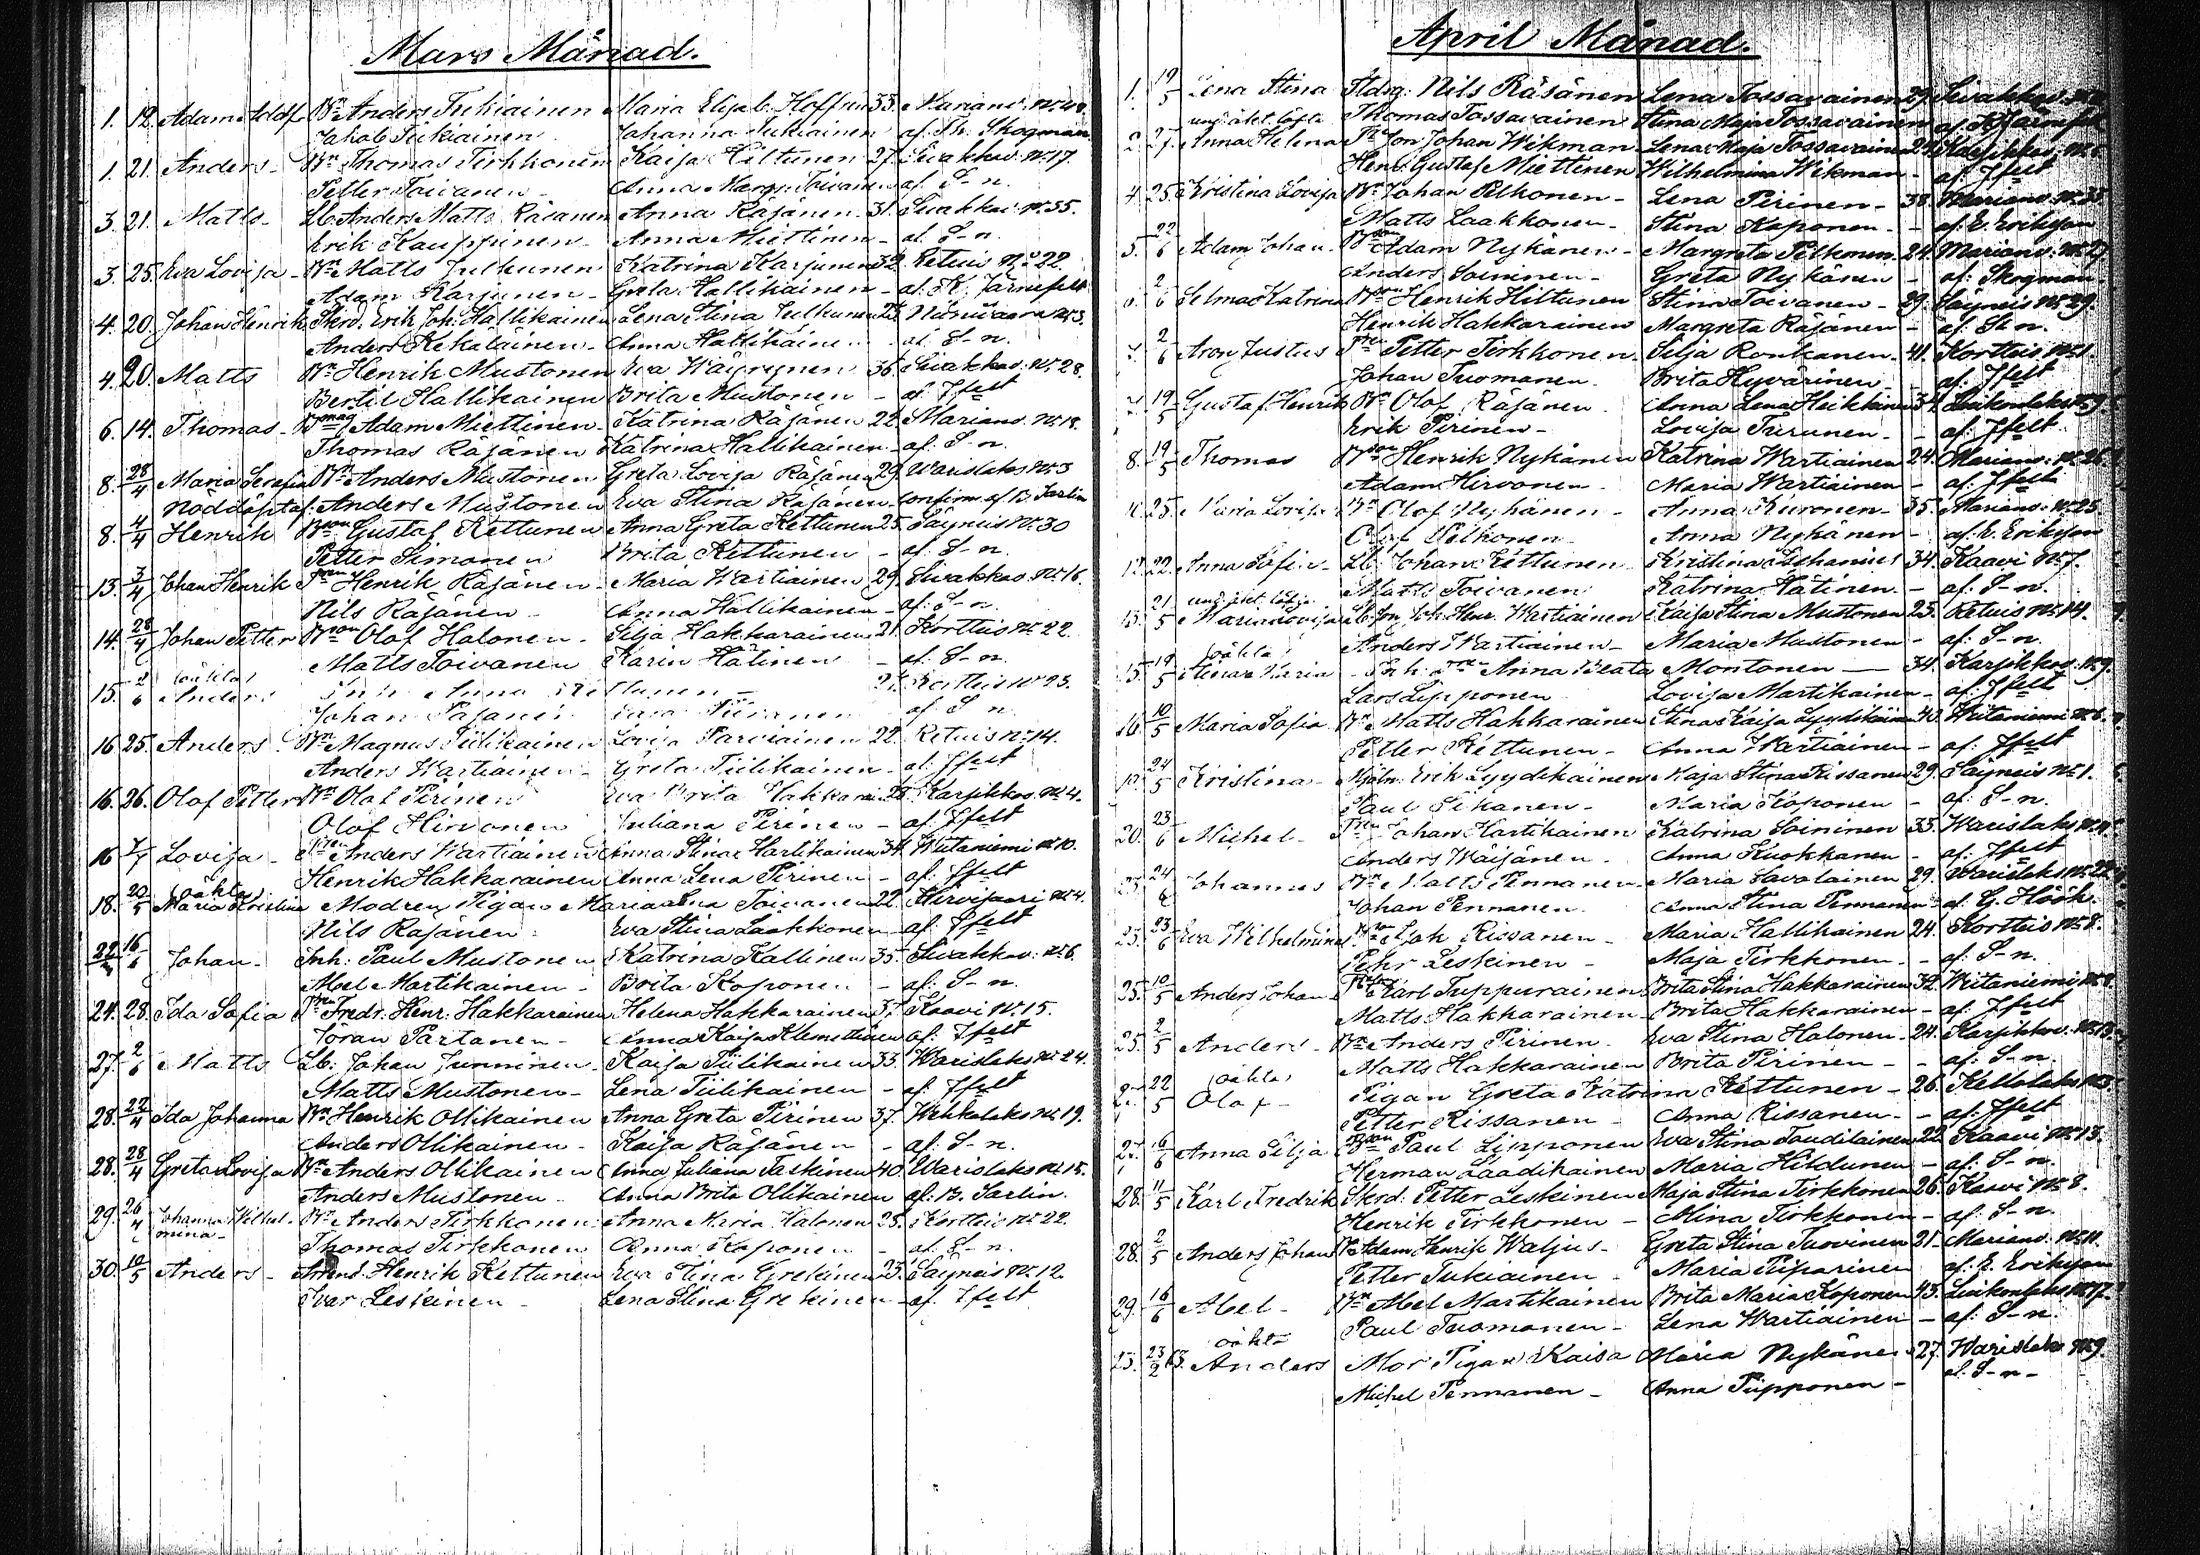 Mars Månad.
1. 12. Adam Adolf Bn Anders Tukiainen Maria Elisab. Hoffrén 33. Marians. No 40.
Jakob Tukiainen Johanna Tukiainen af Th. Skogman
1. 21. Anders - Bn Thomas Tirkkonen Kaisa Hiltunen 27. Sivakkav. No 17.
Petter Toivanen - Anna Margr. Toivanen af S-n.
3. 21. Matts - Lb Anders Matts Räsänen Anna Räsänen 31. Sivakkav. No 35.
Erik Kauppinen - Anna Miettinen - af S-n.
3. 25. Eva Lovisa - Bn Matts Julkunen Katrina Karjunen 32. Retuis No 22.
Adam Karjunen - Greta Hallikainen - af K. Järnefelt
4. 20. Johan Henrik Skrd. Erik Joh. Hallikainen Lena Stina Julkunen No 3.
Anders Kekäläinen - Anna Hallikainen - af S-n.
4. 20. Matts Bn Henrik Mustonen Eva Wäyrynen 36. Sivakkav. No 28.
Bertil Hallikainen Brita Mustonen - af Jfelt
6. 14. Thomas - Adam Miettinen - Katrina Räsänen 22. Marians. No 18.
Thomas Räsänen Katrina Hallikainen - af S-n.
8. 28/4 Maria Serafia Bn Anders Mustonen Greta Lovisa Räsänen 29. Warislaks No 3
Nöddöpt af Anders Mustonen Eva Stina Räsänen - confirm. af B. Sarlin
8. 4/4 Henrik Bson Gustaf Kettunen Anna Greta Kettunen 25. Säyneis No 30
Petter Simonen Brita Kettunen - af S-n.
13. 3/4 Johan Henrik Henrik Räsänen - Maria Wartiainen 29. Sivakkav. No 16.
Nils Räsänen - Anna Hallikainen - af S-n.
14. 28/4 Johan Petter Bson Olof Halonen - Silja Hakkarainen 21. Kortteis No 22.
Matts Toivanen Karin Hätinen - af S-n.
15. 2/6 (oäkta) Anders Inh. Anna No 23.
Johan af S-n
16. 25. Anders - Bn Magnus Tiilikainen Lovisa Parviainen 22. Retuis No 14.
Anders Wartiainen - Greta Tiilikainen - af Jfelt
16. 26. Olof Petter Bn Olof Pirinen Eva Brita Hakkara. 25. Karsikkov. No 4.
Olof Hirvonen Juliana Pirinen - af Jfelt
16. Lovisa - Anders Wartiainen Anna Stina Hartikainen 34. Wiitaniemi No 10.
Henrik Hakkarainen Anna Lena Pirinen - af Jfelt
18. 20/5 (oäkta) Maria Kristina Modren Pigan Maria Lena Toivanen 22. Hirvisaari No 4.
Nils Räsänen - Eva Stina Laakkonen - af Jfelt
22. 16/6 Johan - Inh. Paul Mustonen Katrina Kallinen 35. Sivakkav. No 6.
Abel Martikainen - Brita Koponen - af S-n.
24. 28. Ida Sofia Fredr. Henr. Hakkarainen Helena Hakkarainen 37. Kaavi No 15.
Göran Partanen - Anna Kaisa Klemettinen af Jfelt
27. 2/6 Matts Lb: Johan Junninen - Kaisa Tiilikainen 33. Warislaks No 24.
Matts Mustonen - Lena Tiilikainen - af Jfelt
28. 22/4 Ida Johanna Bn Henrik Ollikainen Anna Greta Pirinen 37. Wehkalaks No 19.
Anders Ollikainen - Kaisa Räsänen - af S-n.
28. 28/4 Greta Lovisa Bn Anders Ollikainen Anna Juliana Taskinen 40. Warislaks No 15.
Anders Mustonen - Anna Brita Ollikainen af B. Sarlin.
29. 26/4 Johanna Wilhel- Bn Anders Tirkkonen Anna Maria Halonen 25. Kortteis No 22.
mina -
Thomas Tirkkonen Anna Koponen - af S-n.
30. 10/5 Anders - Arrend. Henrik Kettunen Eva Stina Grekinen 23. Säyneis No 12.
Ivar Leskinen - Lena Stina Grekinen - af Jfelt
April Månad.
1. 19/5 Lena Stina Nils Räsänen Lena Tossavainen 29. Sivakkav.
Thomas Tossavainen Stina Maja Tossavainen
2. 27. Anna Helena Johan Wikman Lena Maja Tossavainen Karsikkov.
Henr. Gustaf Miettinen Wilhelmina Wikman - af Jfelt
4. 25. Kristina Lovisa Bn Johan Pelkonen - Lena Pirinen - 38. Marians. No 35
Matts Laakkonen - Stina Koponen - af E. Erikson
5. 22/6 Adam Johan - Bson Adam Nykänen - Margreta Pelkonen 24. Marians.
Anders Soininen - Greta Nykänen - af Skogman
6. 2/6 Selma Katrina Bson Henrik Hiltunen Stina Toivanen - 29. Säyneis No 29.
Henrik Hakkarainen Margreta Räsänen - af: S-n.
7. 2/6 Aron Justus Petter Tirkkonen - Silja Ronkanen - 41. Kortteis No 1.
Johan Tuomanen - Brita Hyvärinen - af: Jfelt
7. 19/5 Gustaf Henrik Bn Olof Räsänen. Anna Lena Heikkinen 34.
Erik Pirinen - Lovisa Turunen - - af: Jfelt
8. 19/5 Thomas Bson Henrik Nykänen Katrina Wartiainen 24. Marians: No 26.
Adam Hirvonen - Maria Wartiainen - af: Jfelt
11. 25. Maria Lovisa Bn Olof Nykänen - Anna Kuronen - 35. Marians: No 25
Olof Pelkonen - Anna Nykänen - af: E. Erikson
12. 22. Anna Sofia - Lb. Johan Kettunen - Kristina 34. Kaavi No 7.
Matts Toivanen Katrina Hätinen - - af: S-n.
13. 21/5 Maria Lovisa Joh. Henr. Wartiainen Kaisa Stina Mustonen 23. Retuis No 14.
Anders Wartiainen - Maria Mustonen - af: S-n.
15. 19/5 (oäkta) Stina Maria - Inh. Anna Beata Montonen - 34. Karsikkov. No 9.
Lars Lipponen Lovisa Martikainen - af: Jfelt
16. 10/5 Maria Sofia Bn Matts Hakkarainen Stina Kaisa Lyydikäinen 40. Wiitaniemi No 6.
Petter Kettunen - Anna Wartiainen - af: Jfelt
24/5 Kristina - Mjöln: Erik Lyydikäinen Maja Stina Rissanen 29. Säyneis No 1.
Paul Pekanen - Maria Koponen - af: S-n.
20. 23/6 Michel - Johan Hartikainen Katrina Soininen 33. Warislaks
Anders Wäisänen - Anna Kuokkanen - af: Jfelt
23. 24/6 Johannes Bn Matts Pennanen Maria Savolainen 29. Warislaks No 22.
Johan Pennanen - Anna Stina Pennanen af G. Höök.
23. 23/6 Eva Wilhelmina Rissanen - Maria Hallikainen 24. Kortteis No 8.
Pehr Leskinen - Maja Tirkkonen - - af: S-n.
25. 10/5 Anders Johan Karl Tuppurainen Brita Stina Hakkarainen 32. Wiitaniemi
Matts Hakkarainen Brita Hakkarainen - af: Jfelt
25. 2/5 Anders - Bn Anders Pirinen - Eva Stina Halonen - 24. Karsikkov. No 13.
Matts Hakkarainen Brita Pirinen - - af: S-n.
22/5 (oäkta) Olof - Pigan Greta Katrina Kettunen - 26. Kellolaks
Petter Rissanen - Anna Rissanen - - af: Jfelt
27. 16/6 Anna Silja Bson Paul Lipponen Eva Stina 22. Kaavi No 13.
Herman Laadikainen Maria Hildunen - af: S-n.
28. 11/5 Karl Fredrik Skrd: Petter Leskinen Maja Stina Tirkkonen 26. Kaavi No 8.
Henrik Tirkkonen - Mina Tirkkonen - af: S-n.
28. 2/5 Anders Johan Adam Henrik Waljus - Greta Stina Tuovinen 21. Marians: No 11.
Petter Tukiainen - Maria Piiparinen af: E. Erikson
29. 16/6 Abel - Bn Abel Martikainen Brita Maria Koponen 43. No 17.
Paul Tuomanen - Lena Wartiainen - af: S-n.
23. 23/2 63. oäkta Anders Mor Pigan Kaisa Maria Nykänen 27. Warislaks No 9.
Michel Pennanen - Anna Piipponen - af: S-n -